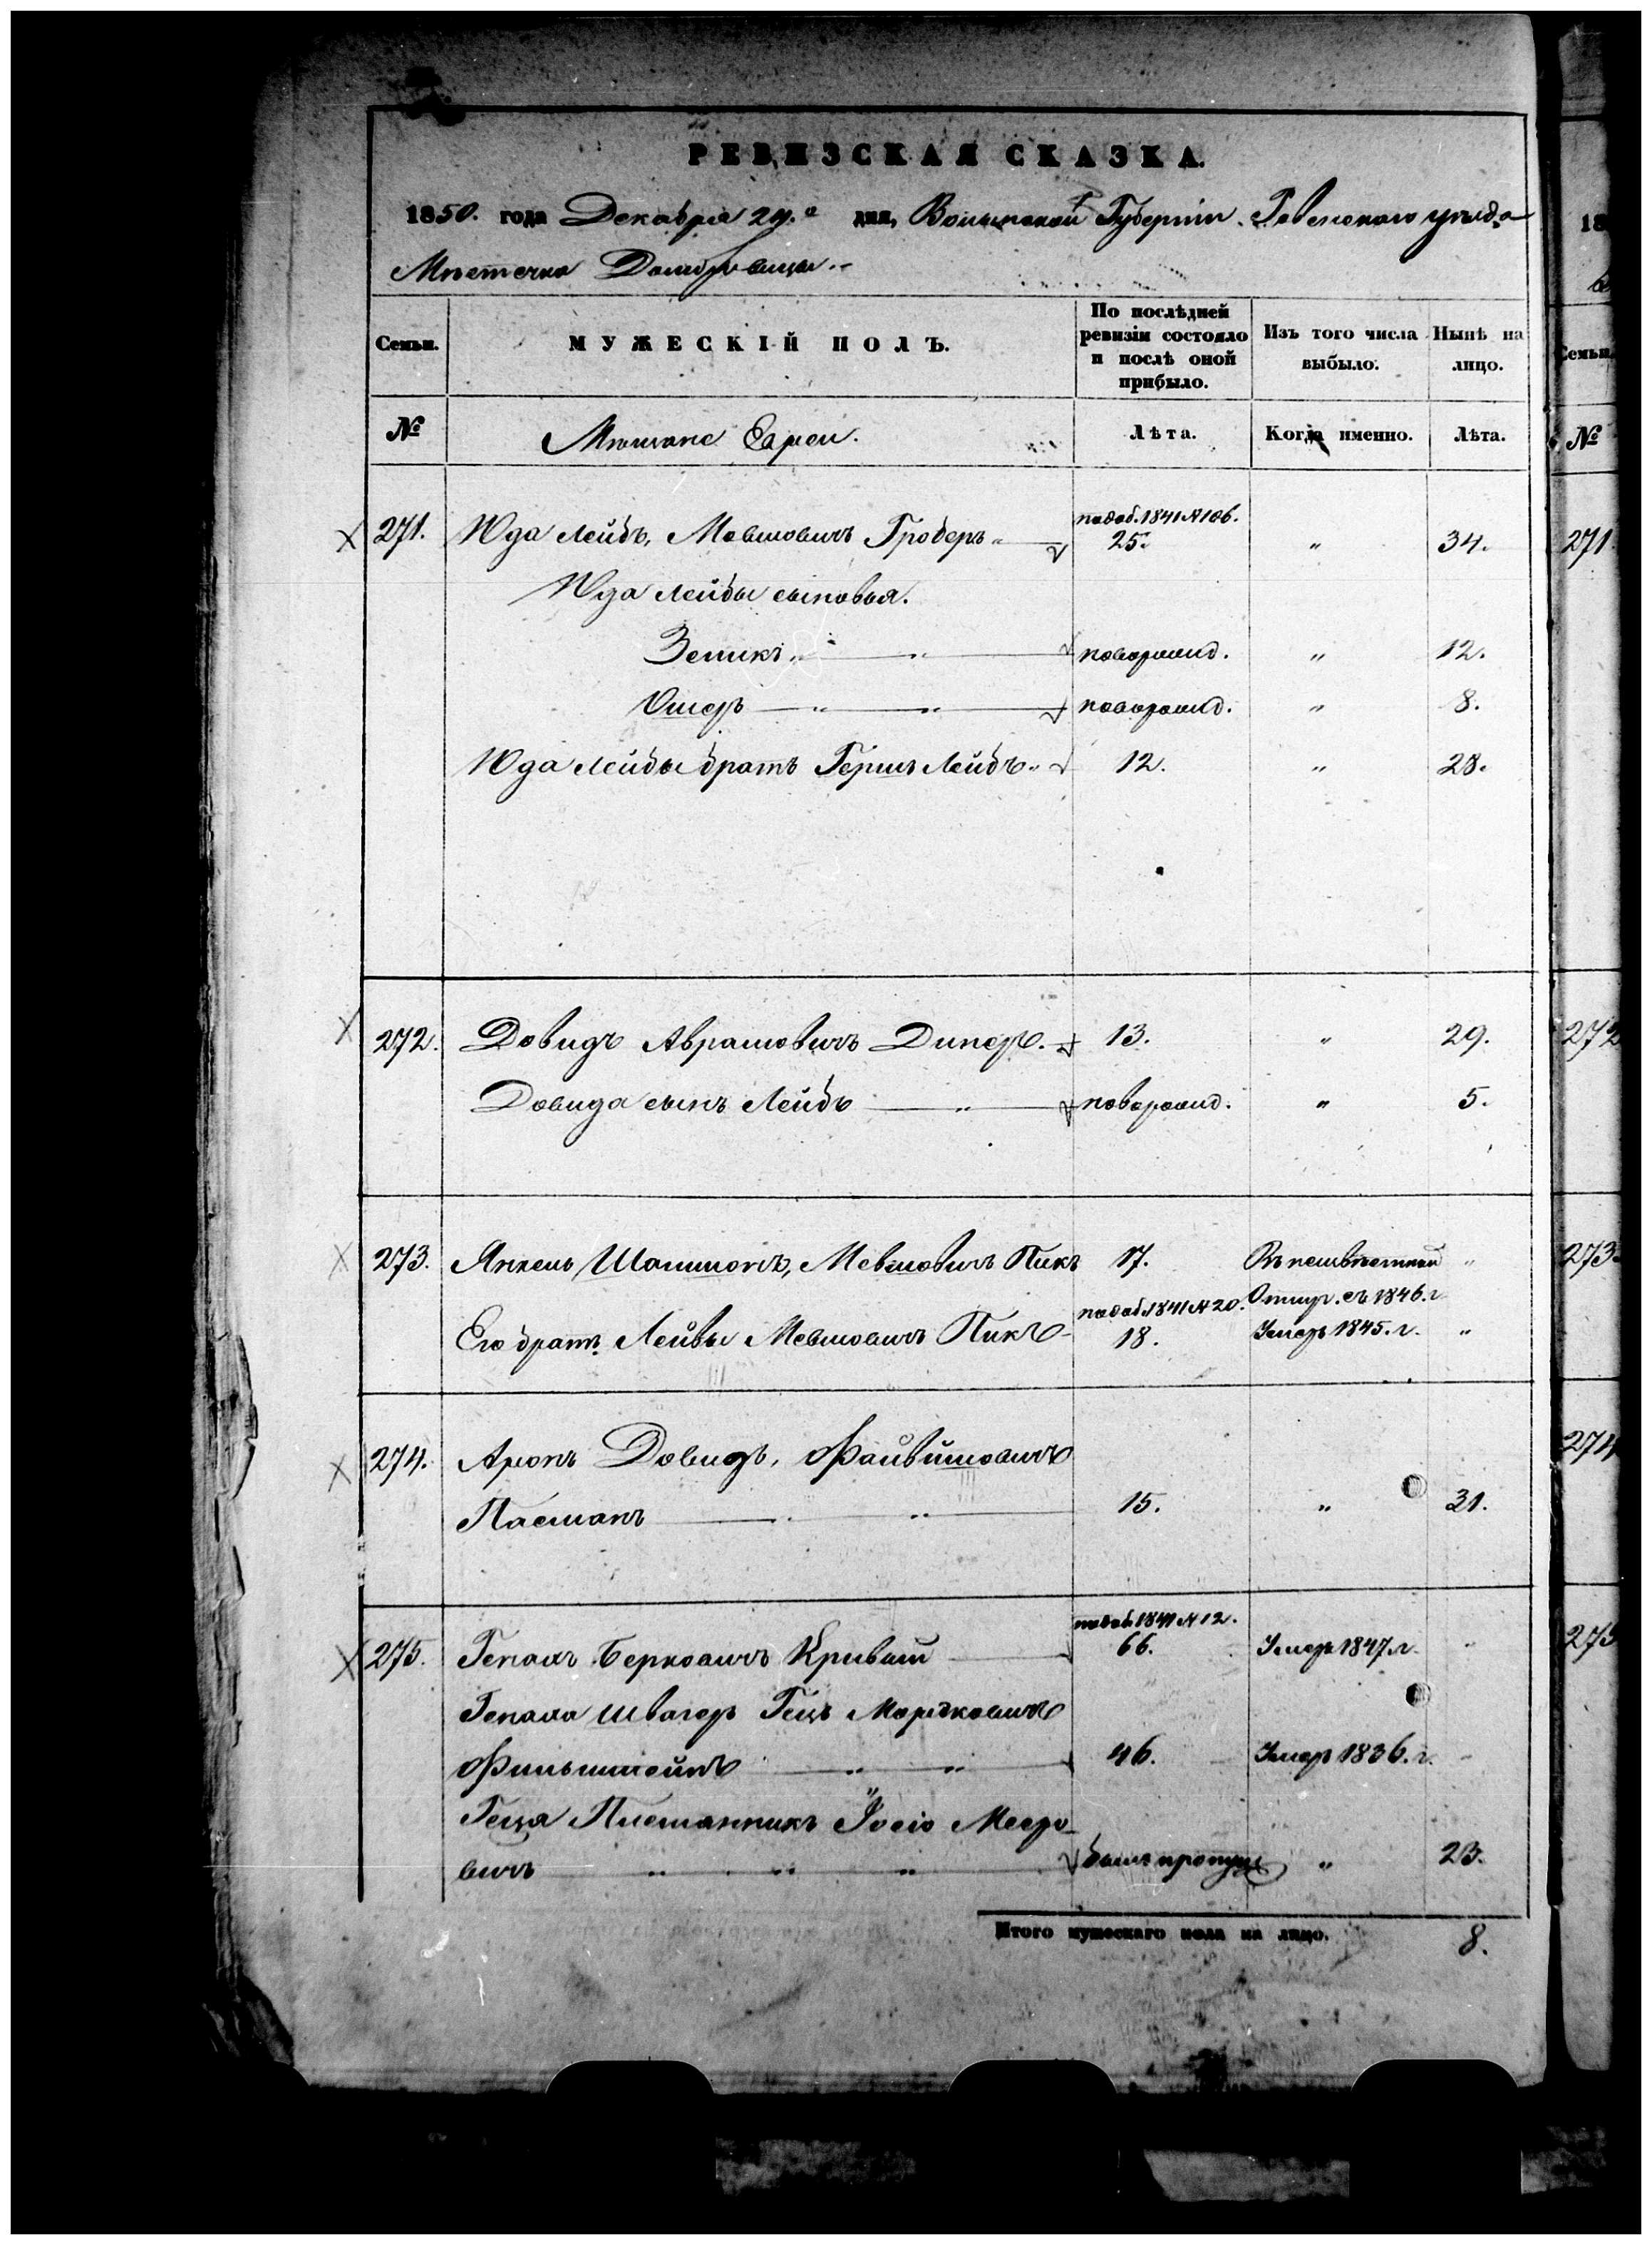 РЕВИЗСКАЯ СКАЗКА.
1850. года Декабря 29.го дня, Волынской Губерніи. Ровенского уѣзда
Мѣстечка Домбровицы.
Семьи. МУЖЕСКІЙ ПОЛЪ. По послѣдней ревизіи состояло и послѣ оной прибыло. Изъ того числа выбыло. Нынѣ на лицо.
№ Мѣщане Евреи. Лѣта. Когда именно. Лѣта.
271. Юда Лейбъ, Мовшовичъ Гроберъ подоб. 1841 № 106. 25. " 34.
Юда Лейбы сыновья.
Зеликъ " " поворожд. " 12.
Ошеръ " " поворожд. " 8.
Юда Лейбы братъ Гершъ Лейбъ " 12. " 28.
272. Довидъ Аврамовичъ Динеръ. 13. " 29.
Довида сынъ Лейбъ " новорожд. " 5.
273. Янкель Шоломонъ, Мевшовичъ Пикъ 17. Въ неизвѣстной "
Отлуч. съ 1846. г
Его братъ Лейвы Мевшовичъ Пикъ подоб. 1841 № 20. 18. Умеръ 1845. г. "
274. Аронъ Довидъ, Файвишовичъ
Пасманъ " " 15. " 31.
275. Генахъ Берковичъ Кривый подоб. 1841 № 12. 66. Умеръ 1847 г. "
Генаха Швагеръ Гецъ Мортковичъ
Финьштейнъ " " 46. Умеръ 1836. г. "
Геця Племянникъ Іосіо Мееро-
вичъ " " " былъ пропущ " 23.
Итого мужескаго пола на лицо. 8.
18
Семьи.
№
271.
272
273.
274
275